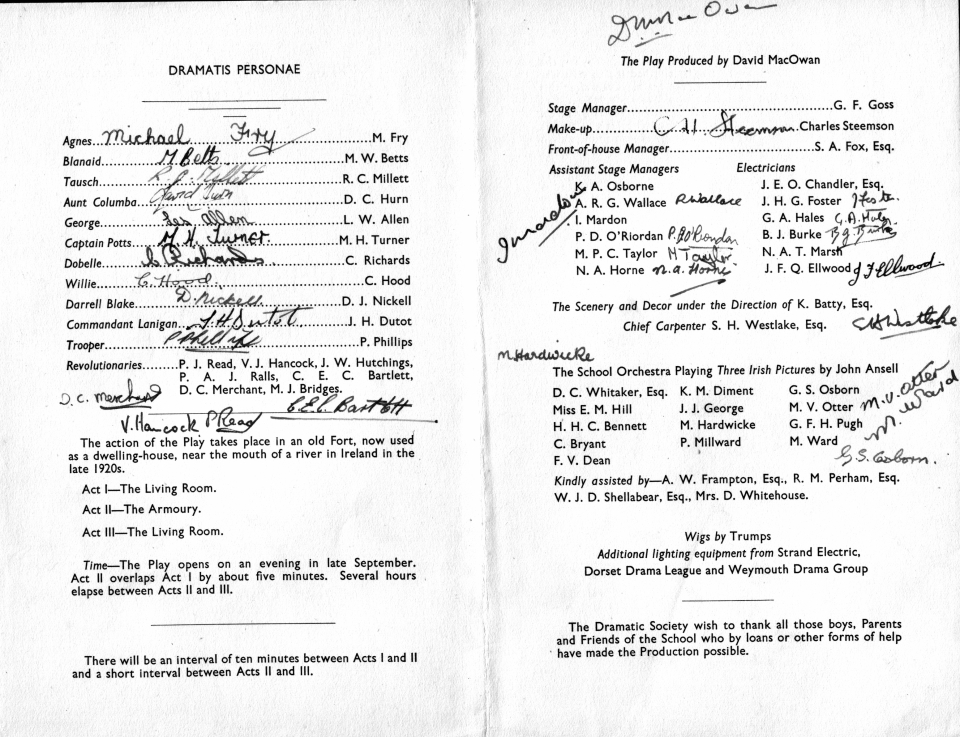 DRAMATIS PERSONAE
Agnes Michael Fry M. Fry
Blanaid M Betts M. W. Betts
Tausch R. J. Millett R. C. Millett
Aunt Columba David Hurn D. C. Hurn
George Les Allen L. W. Allen
Captain Potts M. H. Turner M. H. Turner
Dobelle C Richards C. Richards
Willie C. Hood C. Hood
Darrell Blake D. Nickell D. J. Nickell
Commandant Lanigan J H Dutot J. H. Dutot
Trooper P Phillips P. Phillips
Revolutionaries.........P. J. Read, V. J. Hancock, J. W. Hutchings,
P. A. J. Ralls, C. E. C. Bartlett,
D. C. Merchant, M. J. Bridges.
D. C. Merchant
C.E.C. Bartlett
V. Hancock P Read
The action of the Play takes place in an old Fort, now used
as a dwelling-house, near the mouth of a river in Ireland in the
late 1920s.
Act I—The Living Room.
Act II—The Armoury.
Act III—The Living Room.
Time—The Play opens on an evening in late September.
Act II overlaps Act I by about five minutes. Several hours
elapse between Acts II and III.
There will be an interval of ten minutes between Acts I and II
and a short interval between Acts II and III.
D MacOwan
The Play Produced by David MacOwan
Stage Manager G. F. Goss
Make-up C H Steemson Charles Steemson
Front-of-house Manager S. A. Fox, Esq.
Assistant Stage Managers
K. A. Osborne
A. R. G. Wallace R Wallace
I. Mardon
I Mardon
P. D. O'Riordan P. D. O'Riordan
M. P. C. Taylor M Taylor
N. A. Horne N. A. Horne
Electricians
J. E. O. Chandler, Esq.
J. H. G. Foster J Foster
G. A. Hales G. A. Hales
B. J. Burke B J Burke
N. A. T. Marsh
J. F. Q. Ellwood J F Ellwood
The Scenery and Decor under the Direction of K. Batty, Esq.
Chief Carpenter S. H. Westlake, Esq.
S H Westlake
M Hardwicke
The School Orchestra Playing Three Irish Pictures by John Ansell
D. C. Whitaker, Esq. K. M. Diment G. S. Osborn
Miss E. M. Hill J. J. George M. V. Otter M. V. Otter
H. H. C. Bennett M. Hardwicke G. F. H. Pugh
C. Bryant P. Millward M. Ward M. Ward
F. V. Dean G. S. Osborn.
Kindly assisted by—A. W. Frampton, Esq., R. M. Perham, Esq.
W. J. D. Shellabear, Esq., Mrs. D. Whitehouse.
Wigs by Trumps
Additional lighting equipment from Strand Electric,
Dorset Drama League and Weymouth Drama Group
The Dramatic Society wish to thank all those boys, Parents
and Friends of the School who by loans or other forms of help
have made the Production possible.